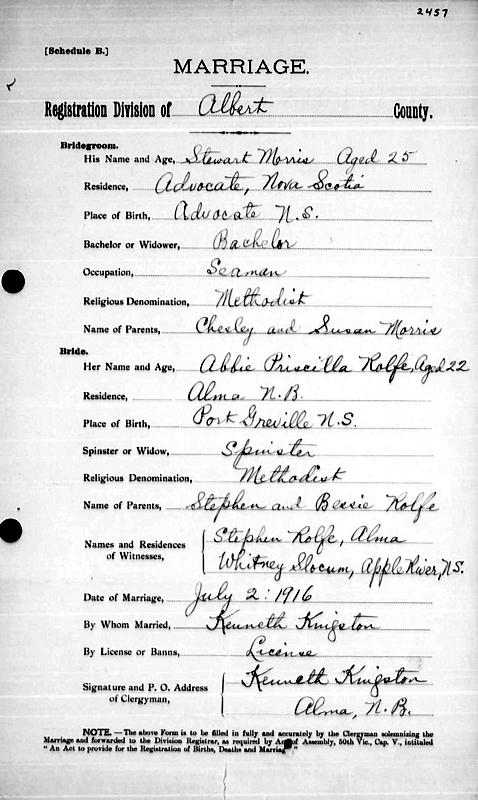 2457
[Schedule B.]
MARRIAGE.
Registration Division of Albert County.
Bridegroom.
His Name and Age, Stewart Morris Aged 25
Residence, Advocate, Nova Scotia
Place of Birth, Advocate N.S.
Bachelor or Widower, Bachelor
Occupation, Seaman
Religious Denomination, Methodist
Name of Parents, Chesley and Susan Morris
Bride.
Her Name and Age, Abbie Priscilla Rolfe, Aged 22
Residence, Alma N.B.
Place of Birth, Port Greville N.S.
Spinster or Widow, Spinster
Religious Denomination, Methodist
Name of Parents, Stephen and Bessie Rolfe
Names and Residences of Witnesses, Stephen Rolfe, Alma
Whitney Slocum, Apple River, N.S.
Date of Marriage, July 2: 1916
By Whom Married, Kenneth Kingston
By License or Banns, License
Signature and P. O. Address of Clergyman, Kenneth Kingston
Alma, N.B.
NOTE.—The above Form is to be filled in fully and accurately by the Clergyman solemnizing the
Marriage and forwarded to the Division Registrar, as required by Act of Assembly, 50th Vic., Cap. V., intituled
"An Act to provide for the Registration of Births, Deaths and Marriag"